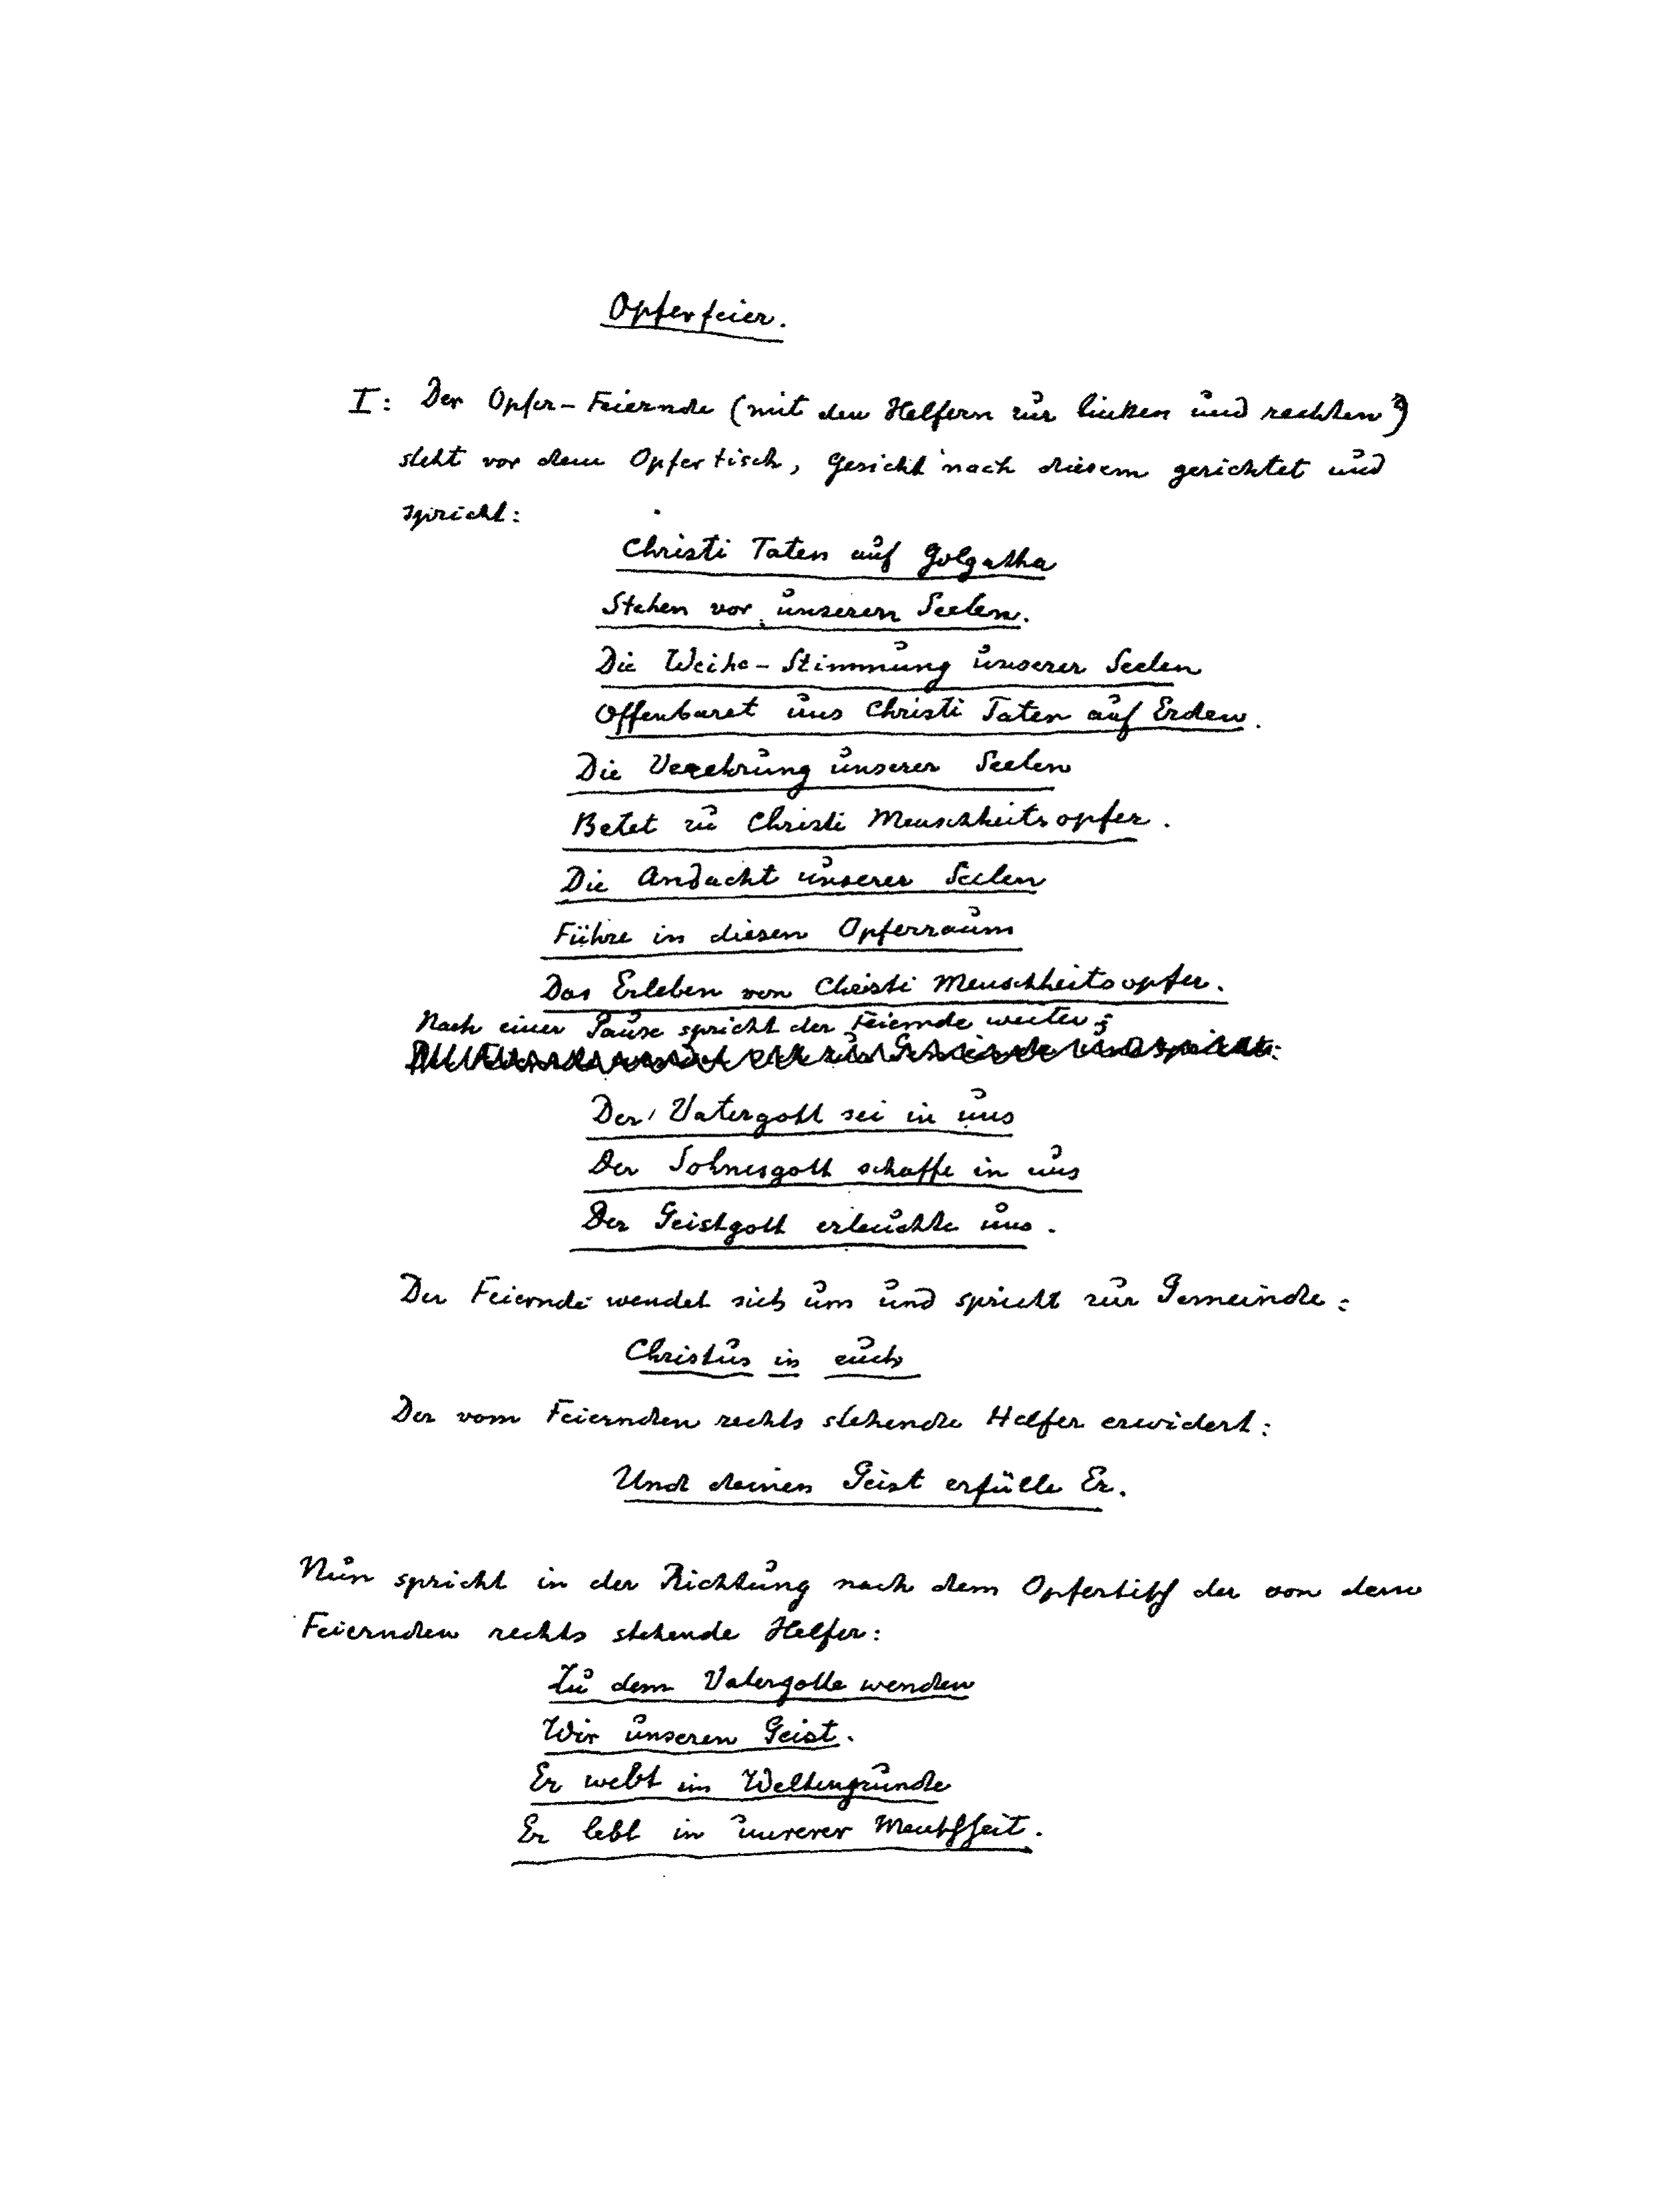 Opferfeier.
I: Der Opfer-Feiernde (mit den Helfern zur linken und rechten)
steht vor dem Opfertisch, Gesicht nach diesem gerichtet und
spricht:
Christi Taten auf Golgatha
Stehen vor unseren Seelen.
Die Weihe-Stimmung unserer Seelen
Offenbaret uns Christi Taten auf Erden.
Die Verehrung unserer Seelen
Betet zu Christi Menschheitsopfer.
Die Andacht unserer Seelen
Führe in diesen Opferraum
Das Erleben von Christi Menschheitsopfer.
Nach einer Pause spricht der Feiernde weiter:
Der Vatergott sei in uns
Der Sohnesgott schaffe in uns
Der Geistgott erleuchte uns.
Der Feiernde wendet sich um und spricht zur Gemeinde:
Christus in euch
Der vom Feiernden rechts stehende Helfer erwidert:
Und deinen Geist erfülle Er.
Nun spricht in der Richtung nach dem Opfertisch der von dem
Feiernden rechts stehende Helfer:
Zu dem Vatergotte wenden
Wir unseren Geist.
Er webt im Weltengrunde
Er lebt in unserer Menschheit.